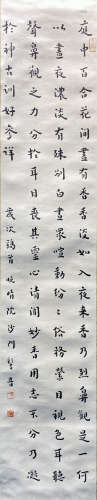 庭中百合花開晝有香香淡如入夜來香乃烈鼻觀是一
以晝夜濃淡有殊別白晝眾喧動紛紛俗務縈目視色耳聽
聲鼻觀之力分於耳目喪其靈心清聞妙香用志不分乃凝
於神古訓好參詳
歲次 晚晴 沙門